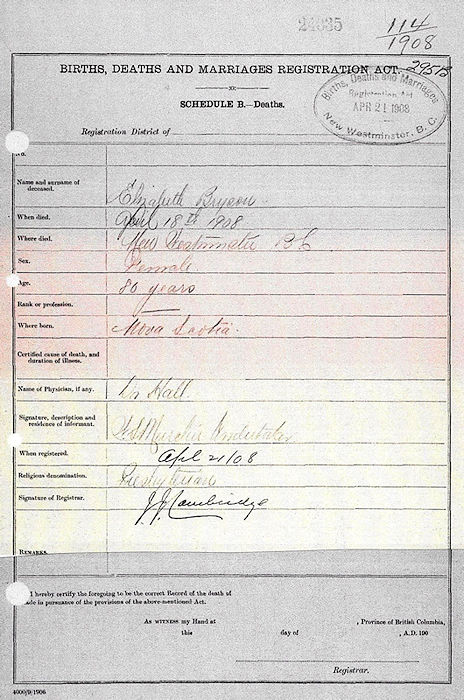 24035
114
1908
BIRTHS, DEATHS AND MARRIAGES REGISTRATION ACT.
Births, Deaths and Marriages
Registration Act
APR 21 1908
New Westminster, B. C.
SCHEDULE B.—Deaths.
Registration District of
No.
Name and surname of deceased.
Elizabeth Bryson
When died.
April 18th 1908
Where died.
New Westminster BC
Sex.
Female
Age.
80 years
Rank or profession.
—
Where born.
Nova Scotia.
Certified cause of death, and duration of illness.
Name of Physician, if any.
Dr Hall.
Signature, description and residence of informant.
Murchie Undertaker
When registered.
April 21/08
Religious denomination.
Presbyterian
Signature of Registrar.
J. J. Cambridge
REMARKS.
I hereby certify the foregoing to be the correct Record of the death of
made in pursuance of the provisions of the above-mentioned Act.
AS WITNESS my Hand at , Province of British Columbia,
this day of , A.D. 190
Registrar.
4000/9/1906